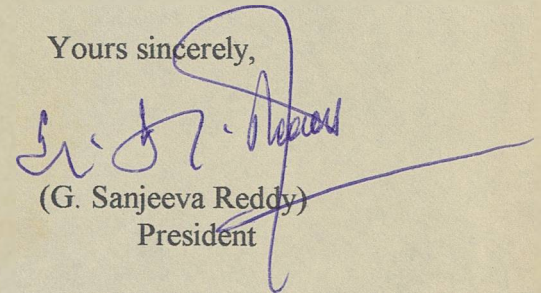 Yours sincerely,
(G. Sanjeeva Reddy)
President